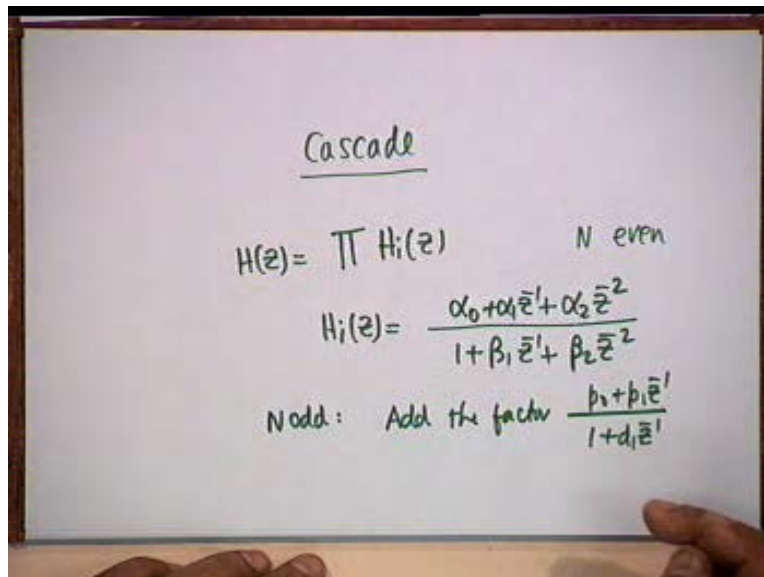 Cascade
H(z) = Π Hi(z) N even
Hi(z) = (α₀+α₁z⁻¹+α₂z⁻²)/(1+β₁z⁻¹+β₂z⁻²)
N odd: Add the factor (p₀+p₁z⁻¹)/(1+d₁z⁻¹)